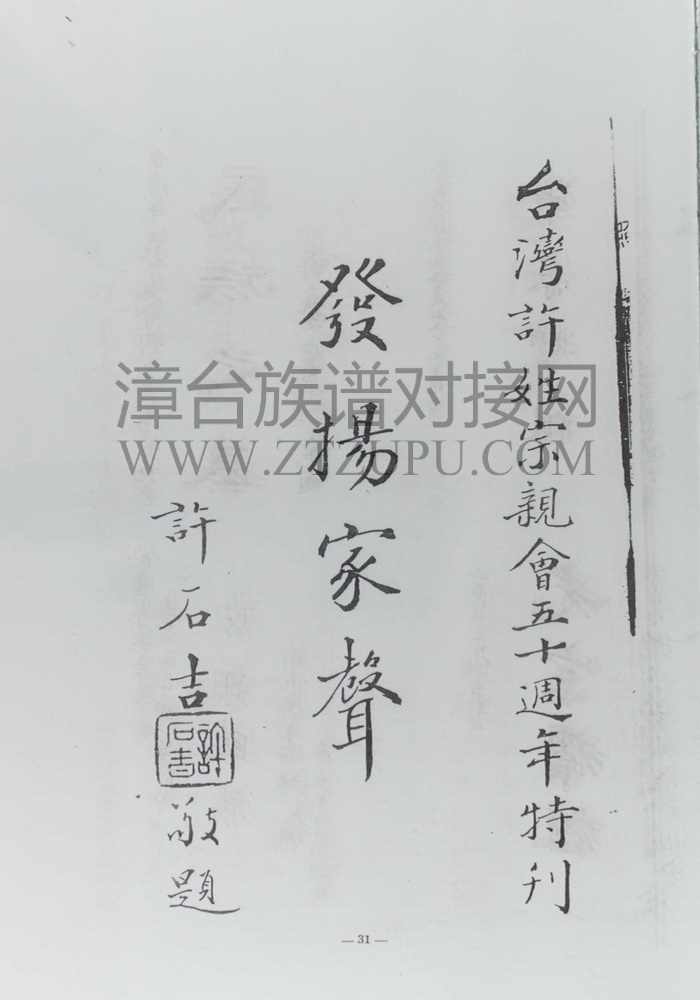 台灣許姓宗親會五十週年特刊
發揚家聲
許石吉
許石吉
敬題
漳台族谱对接网
WWW.ZTZUPU.COM
— 31 —